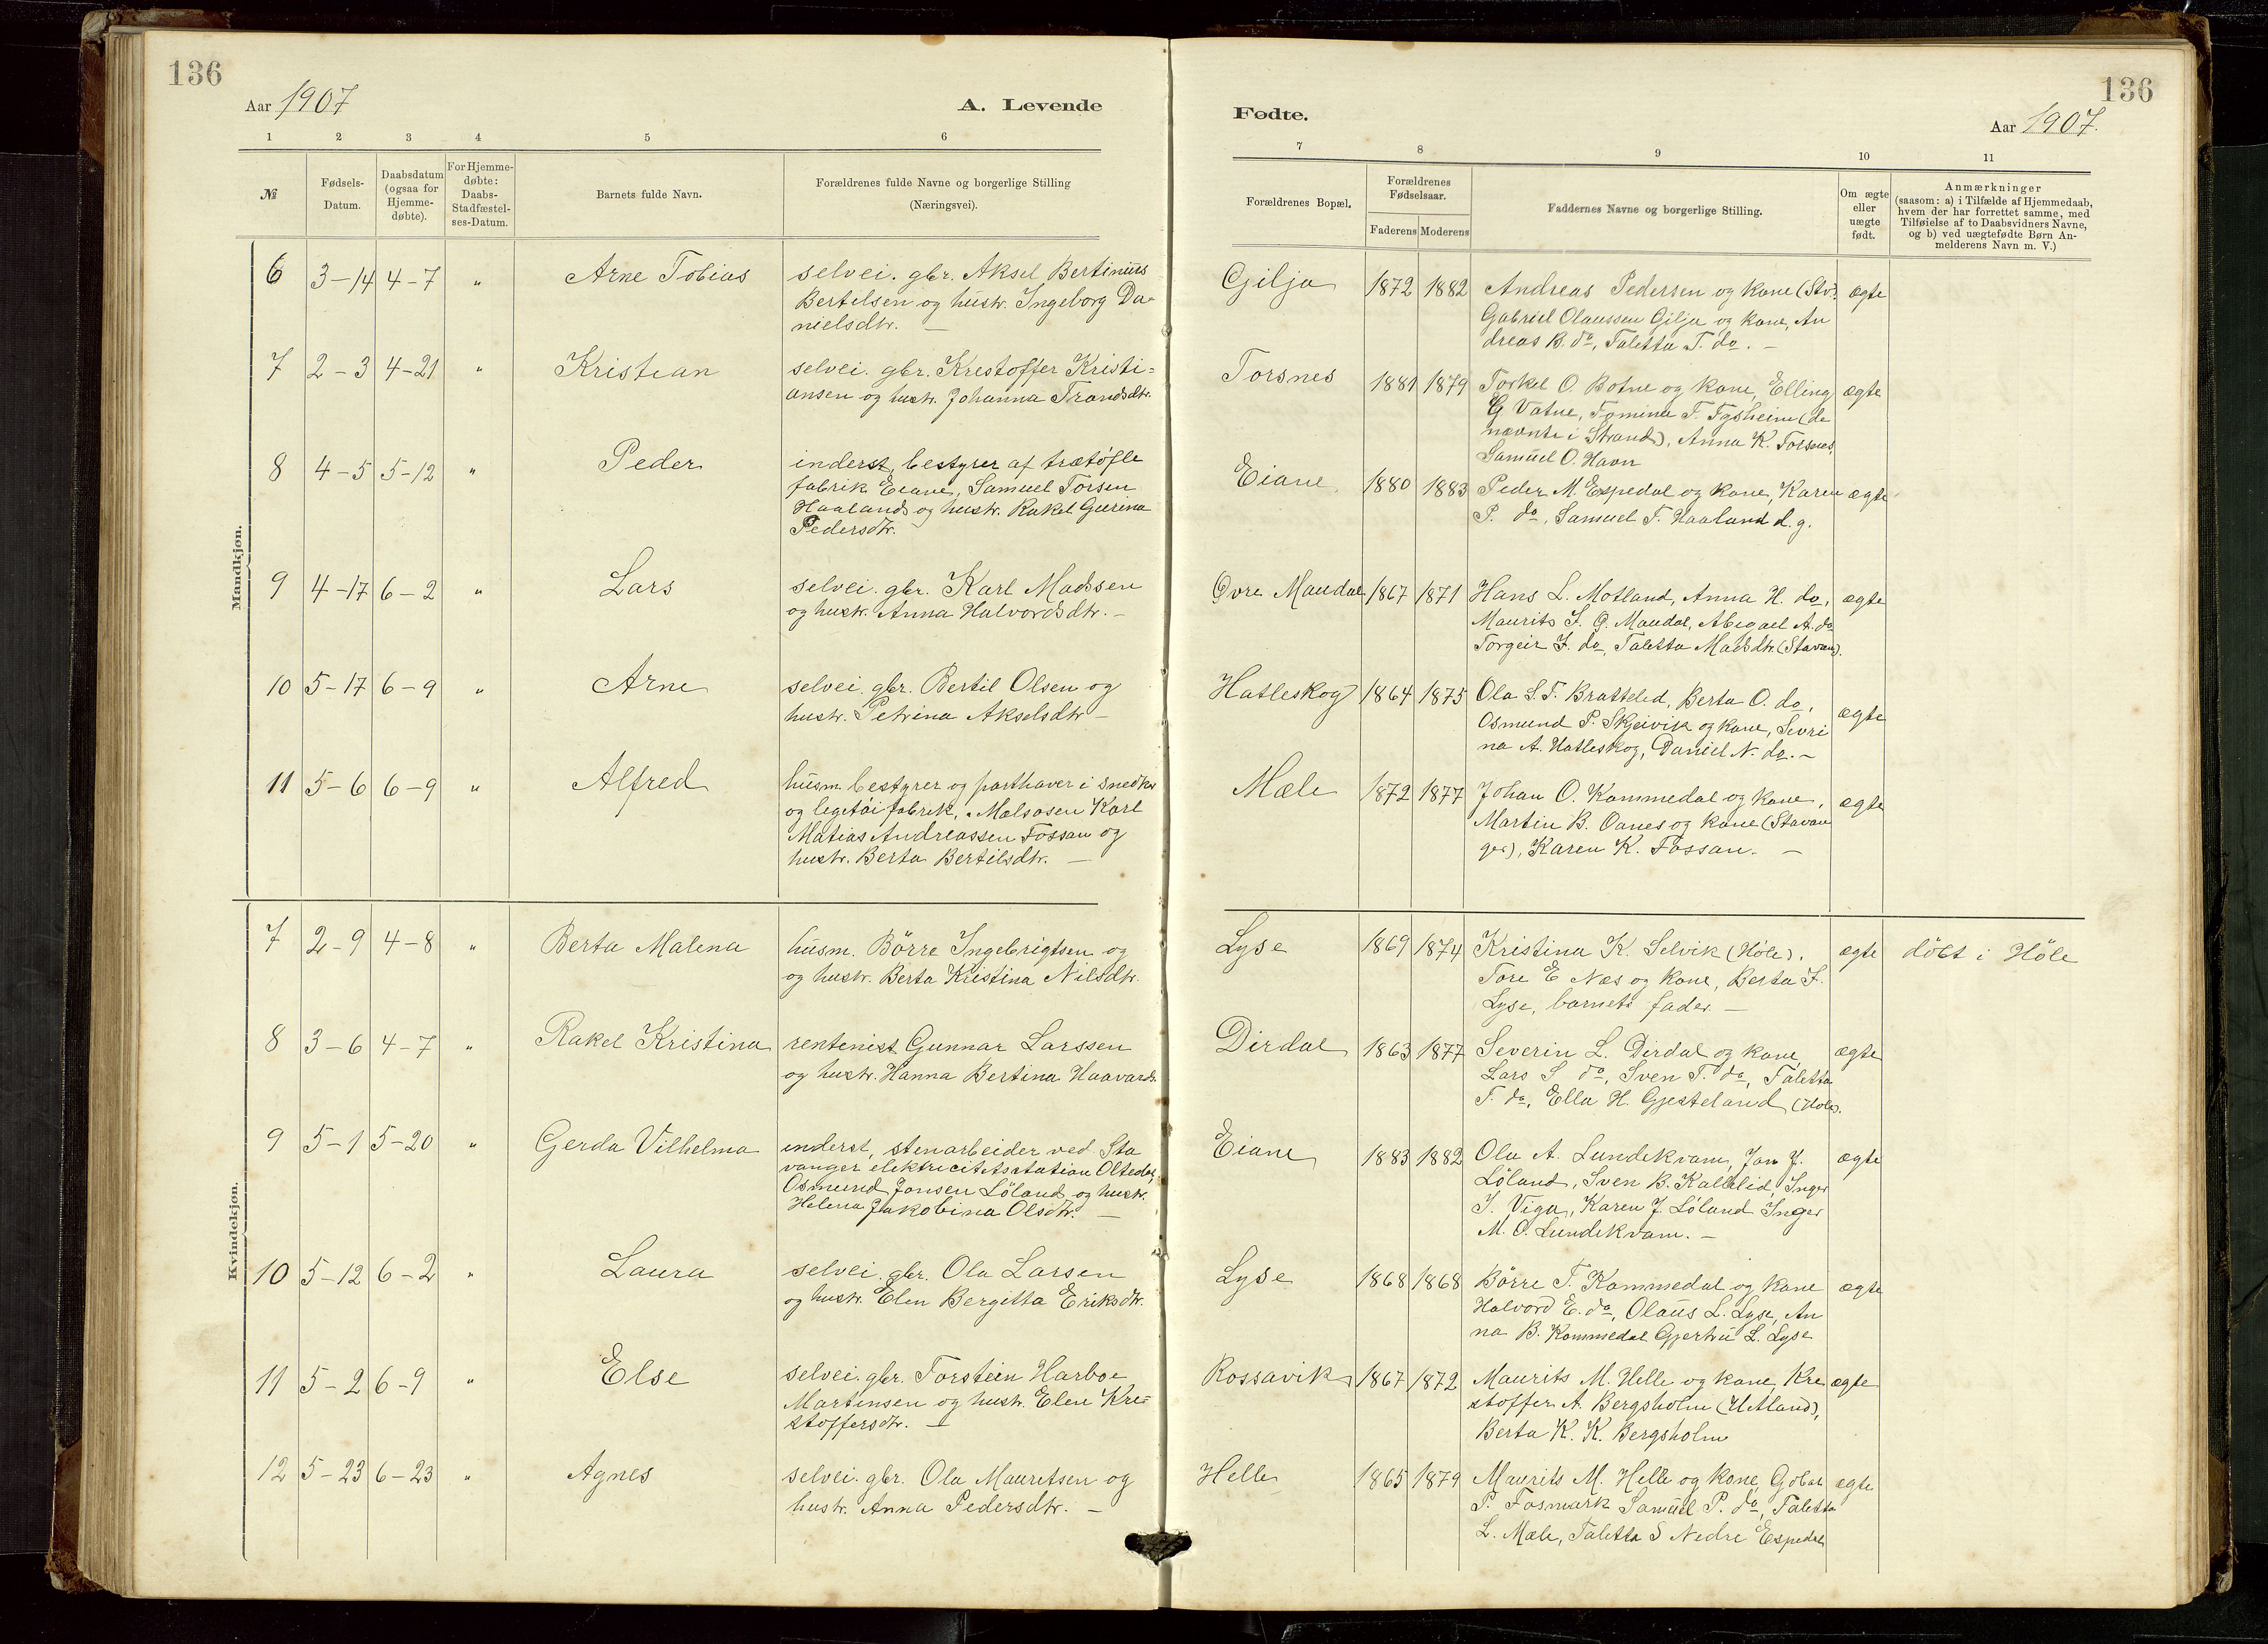 136
Aar 1907
A. Levende
1 2 3 4 5 6
№
Fødsels-
Datum.
Daabsdatum
(ogsaa for
Hjemme-
døbte).
For Hjemme-
døbte:
Daabs-
Stadfæstel-
ses-Datum.
Barnets fulde Navn.
Forældrenes fulde Navne og borgerlige Stilling
(Næringsvei).
Mandkjøn.
6 3-14 4-7 " Arne Tobias selvei. gbr. Aksel Bertinius
Bertelsen og hustr. Ingeborg Da-
nielsdtr. —
7 2-3 4-21 " Kristian selvei. gbr. Krestoffer Kristi-
ansen og hustr. Johanna Trondsdtr.
8 4-5 5-12 " Peder inderst, bestyrer af trætöfle
fabrik Eiane, Samuel Torsen
Haaland og hustr. Rakel Gurina
Pedersdtr.
9 4-17 6-2 " Lars selvei. gbr. Karl Madssen
og hustr. Anna Halvordsdtr. —
10 5-17 6-9 " Arne selvei. gbr. Bertil Olsen og
hustr. Petrina Akselsdtr —
11 5-6 6-9 " Alfred husm. bestyrer og parthaver i snedker
og legetöifabrik, Mælsosen Karl
Matias Andreassen Fossan og
hustr. Berta Bertilsdtr. —
Kvindekjøn.
7 2-9 4-8 " Berta Malena husm. Börre Ingebrigtsen og
og hustr. Berta Kristina Nilsdtr.
8 3-6 4-7 " Rakel Kristina rentenist Gunnar Larssen
og hustr. Hanna Bertina Haavards.
9 5-1 5-20 " Gerda Vilhelma inderst, stenarbeider ved Sta
vanger elektricitetsstation Oltedal,
Osmund Jonsen Löland og hustr.
Helena Jakobina Olsdtr. —
10 5-12 6-2 " Laura selvei. gbr. Ola Larsen
og hustr. Elen Bergitta Eriksdtr.
11 5-2 6-9 " Else selvei. gbr. Torstein Harboe
Martinsen og hustr. Elen Kre-
stoffersdtr. —
12 5-23 6-23 " Agnes selvei. gbr. Ola Mauritsen og
hustr. Anna Pedersdtr. —
136
Fødte.
Aar 1907.
7 8 9 10 11
Forældrenes Bopæl.
Forældrenes
Fødselsaar.
Faderens Moderens
Faddernes Navne og borgerlige Stilling.
Om ægte
eller
uægte
født.
Anmærkninger
(saasom: a) i Tilfælde af Hjemmedaab,
hvem der har forrettet samme, med
Tilføielse af to Daabsvidners Navne,
og b) ved uægtefødte Børn An-
melderens Navn m. V.)
Gilja 1872 1882 Andreas Pedersen og kone (Stv). ægte
Gabriel Olaussen Gilja og kone, An
dreas B. do, Taletta T. do. —
Torsnes 1881 1879 Torkel O. Botne og kone, Elling ægte
G Vatne, Tomina T. Tysheim (de
nævnte i Strand), Anna K. Torsnes.
Samuel O. Havn
Eiane 1880 1883 Peder M. Espedal og kone, Karen ægte
P. do, Samuel T. Haaland d. g.
Øvre Maudal 1867 1871 Hans L. Motland, Anna H. do, ægte
Maurits J. Ø. Maudal, Abigael A. do
Torgeir J. do, Taletta Madsdtr. (Stavan).
Hatleskog 1864 1875 Ola S. T. Brattelid, Berta O. do, ægte
Osmund P. Skjeivik og kone, Sevri
na A. Hatleskog, Daniel N. do. —
Mæle 1872 1877 Johan O. Kommedal og kone, ægte
Martin B. Oanes og kone (Stavan
ger), Karen K. Fossan. —
Lyse 1869 1874 Kristina K. Selvik (Höle). ægte döbt i Höle
Tore E Nes og kone, Berta I.
Lyse, barnets fader. —
Dirdal 1863 1877 Severin L. Dirdal og kone, ægte
Lars S do, Sven T. do, Taletta
T. do, Ella H. Gjesteland (Höle).
Eiane 1883 1882 Ola A. Lundekvam, Jon J. ægte
Löland, Sven B. Kallelid, Inger
J. Viga, Karen J. Löland Inger
M. O. Lundekvam. —
Lyse 1868 1868 Börre T. Kommedal og kone ægte
Halvord E. do, Olaus L. Lyse, An
na B. Kommedal Gjertru L. Lyse
Rossavik 1867 1872 Maurits M. Helle og kone, Kre ægte
stoffer A. Bergsholm (Hetland),
Berta K. K. Bergsholm
Helle 1865 1879 Maurits M. Helle og kone, ægte
P. Fosmark Samuel P. do, Taletta
L. Mæle, Taletta S Nedre Espedal